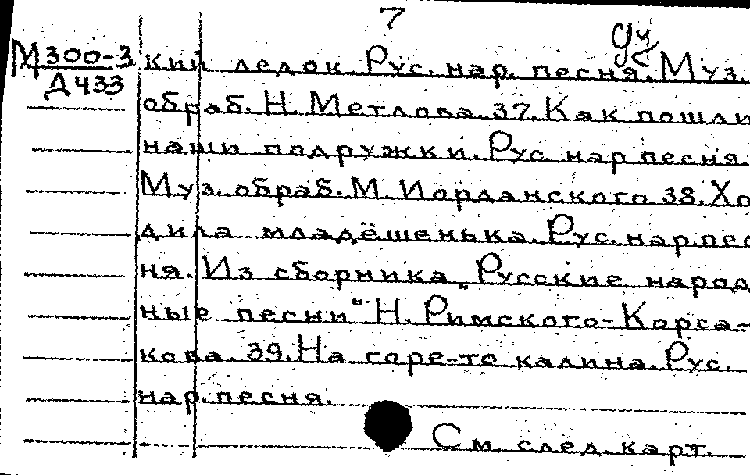 7
М300-3 кий ледок. Рус. нар. песня. Муз.
Д433 обраб. Н. Метлова. 37. Как пошли
наши подружки. Рус. нар. песня.
Муз. обраб. М. Иорданского 38. Хо
дила младёшенька. Рус. нар. пес
ня. Из сборника „Русские народ
ные песни" Н. Римского-Корса-
кова. 39. На горе-то калина. Рус.
нар. песня.
См. след. карт.